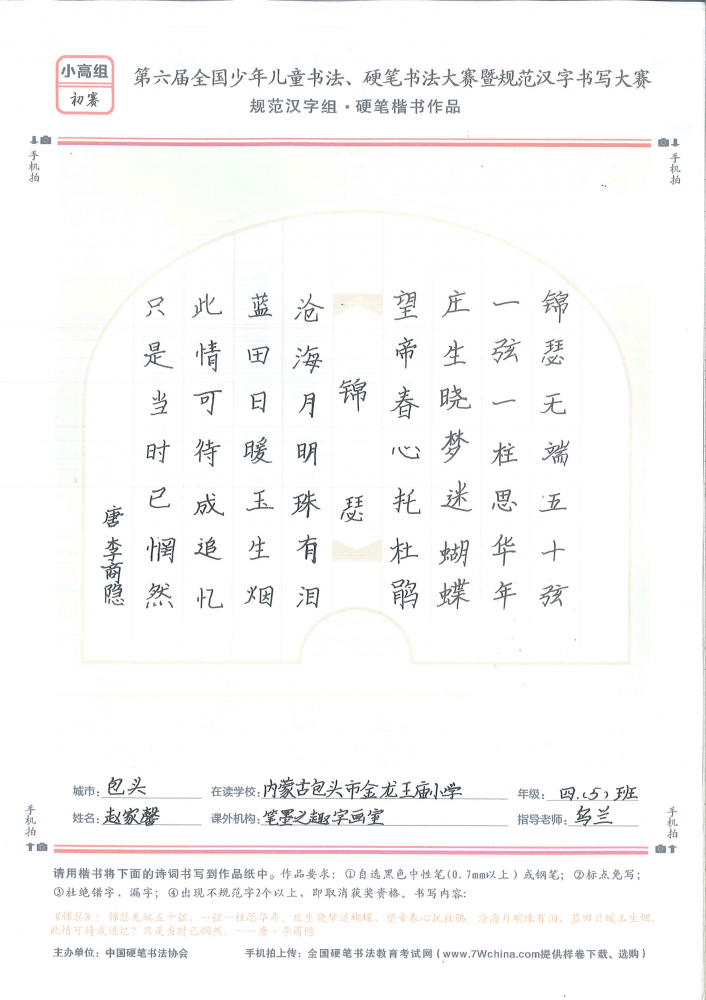 小高组
初赛
第六届全国少年儿童书法、硬笔书法大赛暨规范汉字书写大赛
规范汉字组·硬笔楷书作品
手机拍
手机拍
锦瑟无端五十弦
一弦一柱思华年
庄生晓梦迷蝴蝶
望帝春心托杜鹃
锦瑟
沧海月明珠有泪
蓝田日暖玉生烟
此情可待成追忆
只是当时已惘然
唐李商隐
城市：包头 在读学校：内蒙古包头市金龙王庙小学 年级：四.（5）班
姓名：赵家馨 课外机构：笔墨之趣字画室 指导老师：乌兰
手机拍
手机拍
请用楷书将下面的诗词书写到作品纸中。作品要求：①自选黑色中性笔(0.7mm以上)或钢笔；②标点免写；
③杜绝错字、漏字；④出现不规范字2个以上，即取消获奖资格。书写内容：
《锦瑟》：锦瑟无端五十弦，一弦一柱思华年。庄生晓梦迷蝴蝶，望帝春心托杜鹃。沧海月明珠有泪，蓝田日暖玉生烟。
此情可待成追忆？只是当时已惘然。——唐·李商隐
主办单位：中国硬笔书法协会 手机拍上传：全国硬笔书法教育考试网（www.7Wchina.com提供样卷下载、选购）